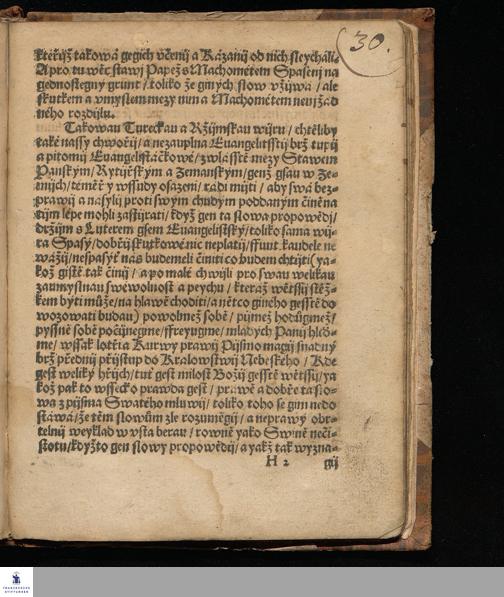 30.
kteřijž takowá gegich včenij a Kázanij od nich sleycháli.
A pro tu wěc stawj Papež s Machométem Spasenj na
gednostegny grunt / toliko že giných slow vžijwá / ale
skutkem a vmyslem mezy nim a Machométem nenj žád
ného rozdijlu.
Takowau Tureckau a Ržijmskau wijru / chtěliby
také nassy chwořij / a nezauplna Euangelitsstij brž tupij
a pitomij Euangelistáčkowé / zwlásstě mezy Stawem
Panským / Rytijřským a Zemanským / genž gsau w Ze-
mijch / téměř y wssudy osazeni / rádi mijti / aby swá bez-
prawij a násylij proti swým chudým poddaným činěná
tijm lépe mohli zastijrati / když gen ta slowa propowědj /
držijm s Luterem gsem Euangelistský / toliko sama wij-
ra Spasý / dobřij skutkowé nic neplatij /
wážij / nespasýť nás budemeli činiti co budem chtijti (ya-
kož gistě tak činij / a po malé chwijli pro swau welikau
zaumyslnau swéwolnost a peychu / kteráž wětssij stěž-
kem býti může / na hlawě choditi / a něco giného gesstě do
wozowati budau) powolmež sobě / pijmež hodůgmež /
pyssně sobě počijnegme / ffreyugme / mladých Panij hleď-
me / wssak lotři a Kurwy prawij Pijsmo magij snadný
brž přednij přijstup do Králowstwij Nebeského / Kde
gest weliký hřijch / tuť gest milost Božij gesstě wětssij / ya
kož pak to wssecko prawda gest / prawě a dobře ta slo-
wa z pijsma Swatého mluwij / toliko toho se gim nedo
stáwá / že těm slowům zle rozumégij / a neprawý obr-
telnij weyklad w vsta berau / rowně yako Swině neči-
stotu / kdyžto gen slowy propowědij / a yakž tak wyzna-
H 2 gij
FRANCKESCHE STIFTUNGEN